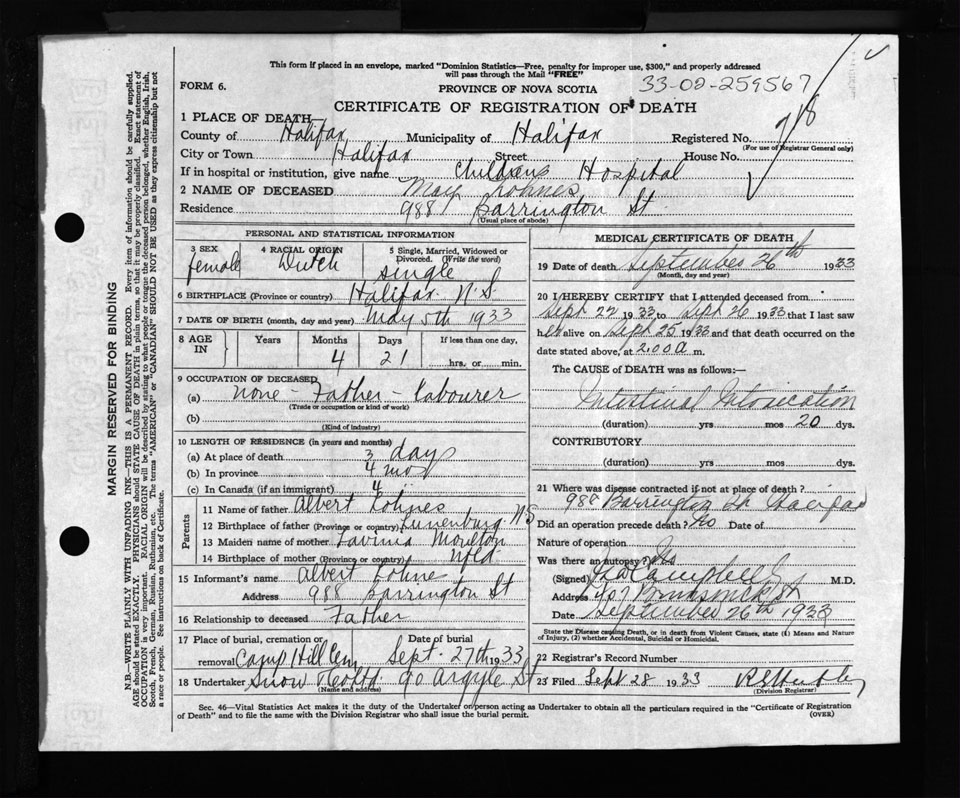 This form if placed in an envelope, marked "Dominion Statistics—Free, penalty for improper use, $300," and properly addressed
will pass through the Mail "FREE"
33-02-259567
FORM 6.
PROVINCE OF NOVA SCOTIA
CERTIFICATE OF REGISTRATION OF DEATH
1 PLACE OF DEATH
County of Halifax Municipality of Halifax Registered No. 718
(For use of Registrar General only)
City or Town Halifax Street House No.
If in hospital or institution, give name Childrens Hospital
2 NAME OF DECEASED May Lohnes
Residence 988 Barrington St
(Usual place of abode)
PERSONAL AND STATISTICAL INFORMATION
3 SEX female
4 RACIAL ORIGIN Dutch
5 Single, Married, Widowed or Divorced. (Write the word) single
6 BIRTHPLACE (Province or country) Halifax N.S
7 DATE OF BIRTH (month, day and year) May 5th 1933
8 AGE IN Years Months Days If less than one day,
4 21 hrs. or min.
9 OCCUPATION OF DECEASED
(a) none - Father - Labourer
(Trade or occupation or kind of work)
(b)
(Kind of industry)
10 LENGTH OF RESIDENCE (in years and months)
(a) At place of death 3 days
(b) In province 4 mos
(c) In Canada (if an immigrant) 4 "
Parents
11 Name of father Albert Lohnes
12 Birthplace of father (Province or country) Lunenburg N.S
13 Maiden name of mother Lavinia Moulton
14 Birthplace of mother (Province or country) Nfld
15 Informant's name Albert Lohne
Address 988 Barrington St
16 Relationship to deceased Father
17 Place of burial, cremation or removal Camp Hill Cem Date of burial Sept. 27th 1933
18 Undertaker Snow & Co Ltd 90 Argyle St
(Name and address)
MEDICAL CERTIFICATE OF DEATH
19 Date of death September 26th 1933
(Month, day and year)
20 I HEREBY CERTIFY that I attended deceased from
Sept 22 1933 to Sept 26 1933 that I last saw
her alive on Sept 25 1933 and that death occurred on
date stated above, at 2.00 a m.
The CAUSE of DEATH was as follows:—
Intestinal Intoxication
(duration) yrs mos 20 dys.
CONTRIBUTORY
(duration) yrs. mos. dys.
21 Where was disease contracted if not at place of death?
988 Barrington St Halifax
Did an operation precede death? No Date of
Nature of operation
Was there an autopsy?
(Signed) Campbell M.D.
Address 407 Brunswick St
Date September 26th 1933
State the Disease causing Death, or in death from Violent Causes, state (1) Means and Nature
of Injury, (2) whether Accidental, Suicidal or Homicidal.
22 Registrar's Record Number
23 Filed Sept 28 1933
(Division Registrar)
Sec. 46—Vital Statistics Act makes it the duty of the Undertaker or person acting as Undertaker to obtain all the particulars required in the "Certificate of Registration
of Death" and to file the same with the Division Registrar who shall issue the burial permit.
(OVER)
MARGIN RESERVED FOR BINDING
N.B.—WRITE PLAINLY WITH UNFADING INK—THIS IS A PERMANENT RECORD. Every item of information should be carefully supplied.
AGE should be stated EXACTLY. PHYSICIANS should STATE CAUSE OF DEATH in plain terms, so that it may be properly classified. Exact statement of
OCCUPATION is very important. RACIAL ORIGIN will be described by stating to what people or tongue the deceased person belonged, whether English, Irish,
Scotch, French, German, Russian, Ruthenian, etc. The terms "AMERICAN" or "CANADIAN" SHOULD NOT BE USED as they express citizenship but not
a race or people. See instructions on back of Certificate.